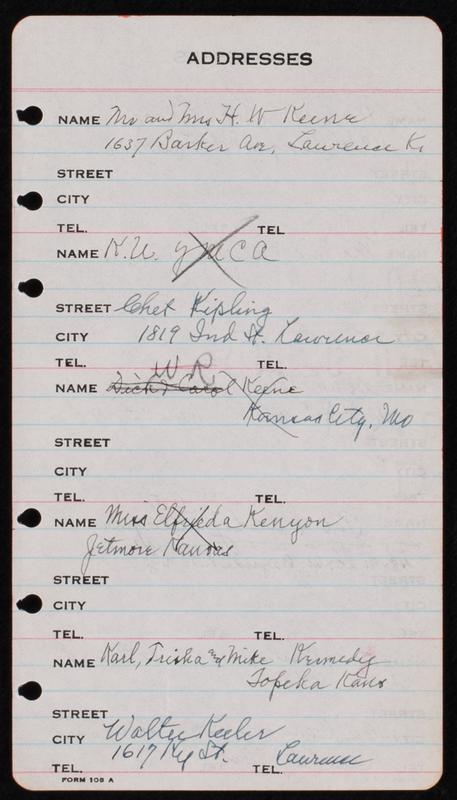 ADDRESSES
NAME Mr and Mrs H. W Keene
1637 Barker Ave, Lawrence Ks
STREET
CITY
TEL. TEL
NAME K.U. YMCA
STREET Chet Kipling
CITY 1819 Ind St. Lawrence
TEL. TEL.
W R
NAME Dick & Carol Keene
Kansas City, Mo
STREET
CITY
TEL. TEL.
NAME Miss Elfrieda Kenyon
Jetmore Kansas
STREET
CITY
TEL. TEL.
NAME Karl, Trisha & Mike Kennedy
Topeka Kans
STREET
CITY Walter Keeler
1617 Ky St. Lawrence
TEL. TEL.
FORM 108 A